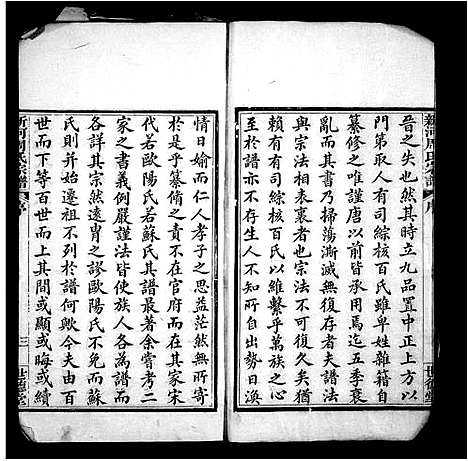 新河周氏宗譜
序
世德堂
晉之失也然其時立九品置中正上以
門第取人有司綜核百氏雖卑姓雜籍自
纂修之唯謹唐以前皆承用焉迄五季衰
亂而其書乃掃蕩澌滅無復存者夫譜法
與宗法相表裏者也宗法不可行久矣猶
賴有有司綜核百氏以維繫乎萬族之心
於譜亦不存生人不知所自出勢日渙
情日媮而仁人孝子之思益茫然無所寄
於是乎纂脩之責不在官府而在民間宋
代若歐陽氏若蘇氏其譜最著余嘗考二
家之書義例嚴謹法皆使族各為譜而
各詳其宗然遠胄之謬歐陽氏不免焉蘇
氏則并始遷祖不列於譜何歟今夫由百
世而下等百世而上間或顯或晦或續
新河周氏宗譜
序
三
世德堂